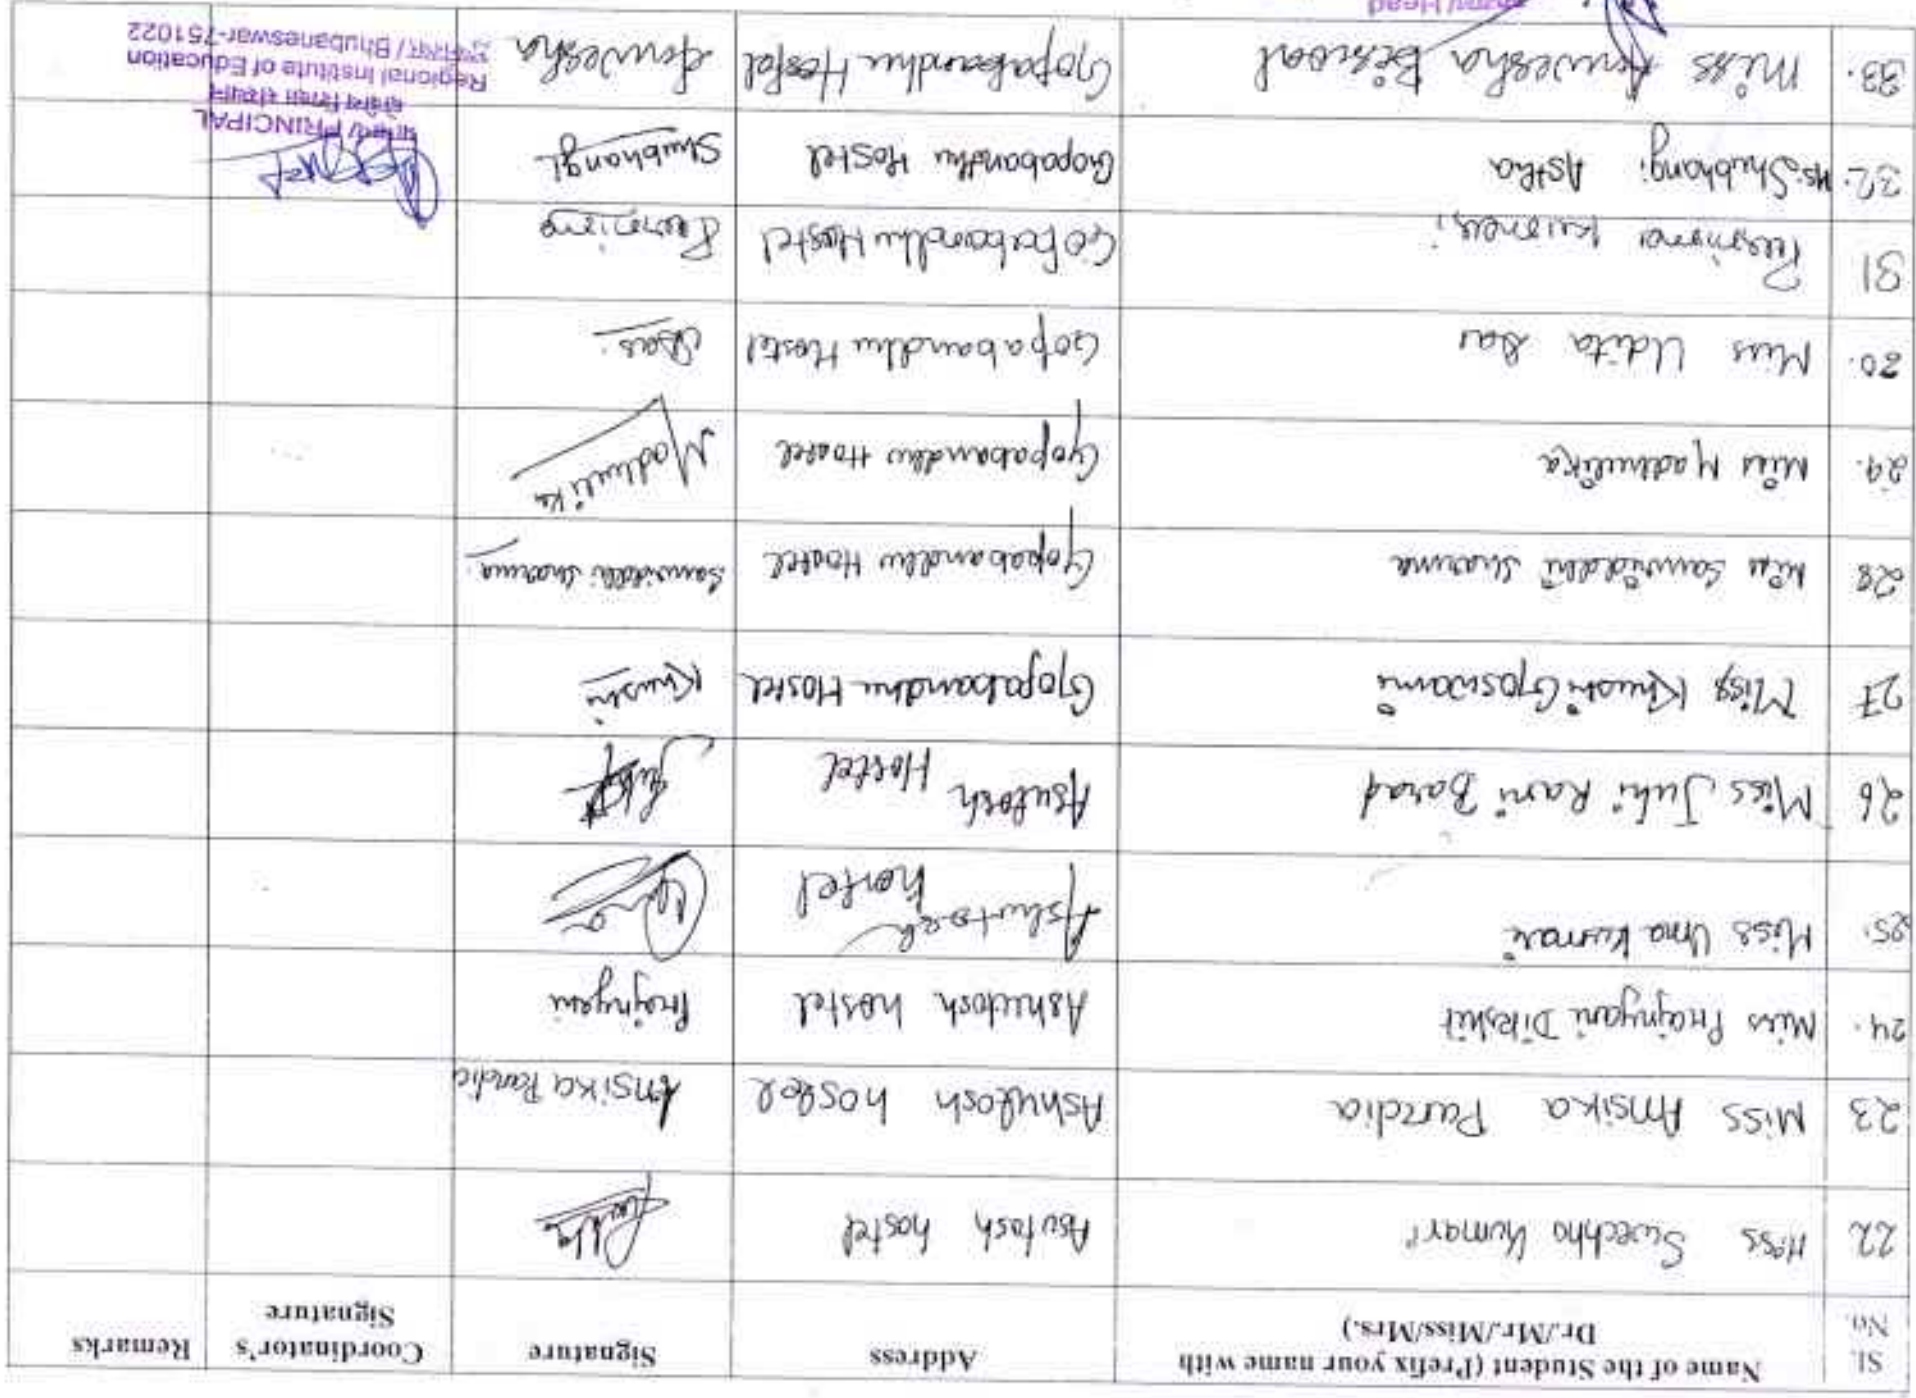 Sl. No. Name of the Student (Prefix your name with Dr./Mr./Miss/Mrs.) Address Signature Coordinator's Signature Remarks
22 Miss Swechha Kumari Asutosh hostel
23 Miss Ansika Paridia Ashutosh hostel Ansika Paridia
24. Miss Prajnyani Dikshit Ashutosh hostel Prajnyani
25. Miss Uma kumari Ashutosh hostel
26 Miss Juhi Rani Barad Asutosh Hostel Juhi
27 Miss Khushi Goswami Gopabandhu Hostel Khushi
28 Miss Samriddhi Sharma Gopabandhu Hostel Samriddhi Sharma.
29. Miss Madhulika Gopabandhu Hostel Madhulika
30. Miss Udita Das Gopabandhu Hostel Das.
31 Purnima Kumari Gopabandhu Hostel Purnima
32. Ms. Shubhangi Astha Gopabandhu Hostel Shubhangi
33. Miss Anwesha Biswal Gopabandhu Hostel Anwesha
PRINCIPAL
Regional Institute of Education
Bhubaneswar-751022
Head